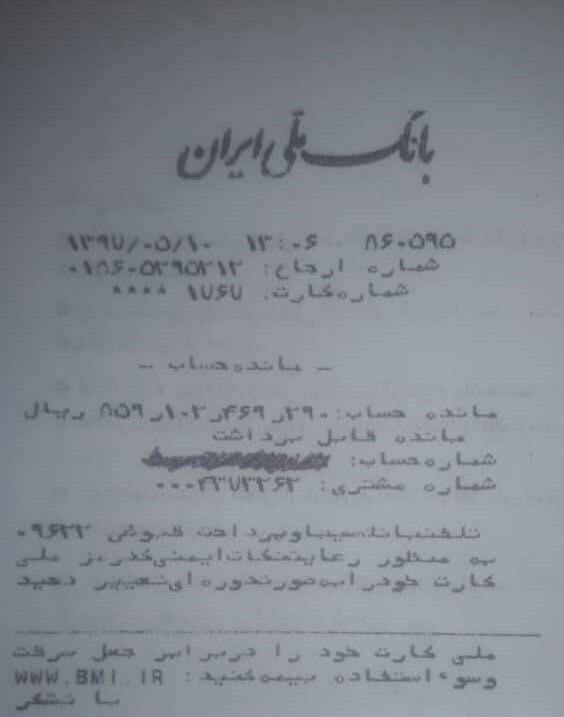 بانک ملی ایران
۱۳۹۷/۰۵/۱۰ ۱۳:۰۶ ۸۶۰۵۹۵
شماره ارجاع: ۰۱۸۶۰۵۳۹۵۲۱۲
شماره کارت: ۱۷۶۷ ****
- مانده حساب -
مانده حساب: ۸۵۹ر۱۰۲ر۴۶۹ر۲۹۰ ریال
مانده قابل برداشت
شماره حساب:
شماره مشتری:
تلفنبانک سیبا و پرداخت قبوض ۰۹۶۳۲
به منظور رعایت نکات ایمنی کدرمز ملی
کارت خود را به صورت دوره ای تغییر دهید
ملی کارت خود را در برابر جعل سرقت
وسوء استفاده بیمه کنید: WWW.BMI.IR
با تشکر